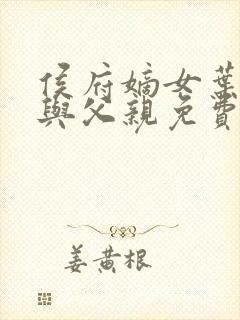 侯府嫡女葉
與父親免費
姜黃根